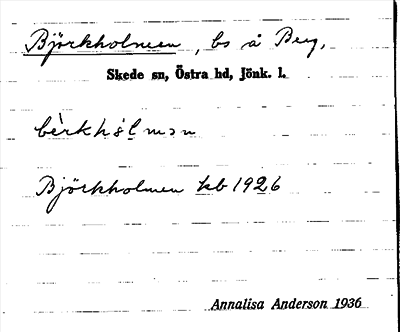 Björkholmen, bs å Berg,
Skede sn, Östra hd, Jönk. l.
Björkholmen kb 1926
Annalisa Anderson 1936